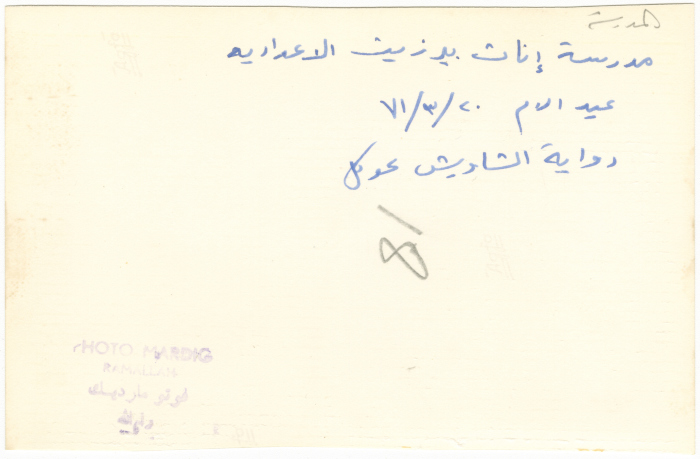 المدرسة
مدرسة إناث بير زيت الاعداديه
عيد الام ٢٠/٣/٧١
رواية الشاويش
81
PHOTO MARDIG
RAMALLAH
فوتو مارديك
رام الله